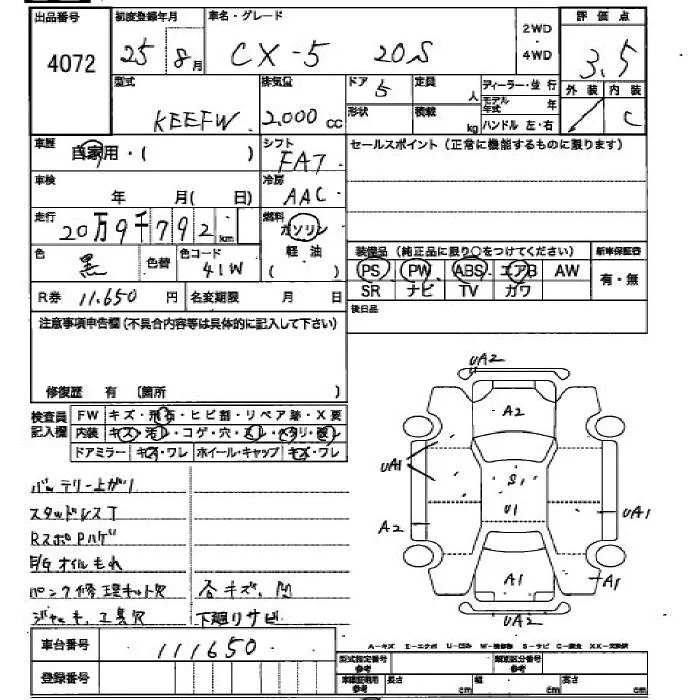 出品番号 初度登録年月 車名・グレード 2WD ・ 4WD 評価点
4072 25 8月 CX-5 20S 3.5
型式 排気量 ドア 5 定員 人 ディーラー・並行 外装 内装
KEEFW 2,000 cc 形状 積載 kg モデル年式 年 C
ハンドル 左・右
車歴 自家用・( ) シフト FA7 セールスポイント(正常に機能するものに限ります)
車検 年 月( 日) 冷房 AAC
走行 20万9千792 km 燃料 ガソリン
軽油
色 黒 色替 色コード 41W 装備品(純正品に限り○をつけてください) 新車保証書
PS PW ABS エアB AW 有・無
R券 11,650 円 名変期限 月 日 SR ナビ TV カワ
注意事項申告欄(不具合内容等は具体的に記入して下さい) 後日品
修復歴 有 〔箇所 〕
検査員記入欄 FW キズ・飛石・ヒビ割・リペア跡・X要
内装 キズ・汚レ・コゲ・穴・
ドアミラー キズ・ワレ ホイール・キャップ キズ・ワレ
バッテリー上がり
スタッドレスT
RスポPハゲ
E/Gオイルもれ
パンク修理キット欠 合キズ、凹
ジャッキ、工具欠 下廻りサビ
UA2
A2
UA1
S1
U1
A2
UA1
A1
A1
UA2
車台番号 111650
A-キズ E-エクボ U-凹ミ W-補修跡 S-サビ C-腐食 XX-交換済
登録番号 型式指定番号 参考 類別区分番号 参考
車検証用 参考 長さ cm 幅 cm 高さ cm